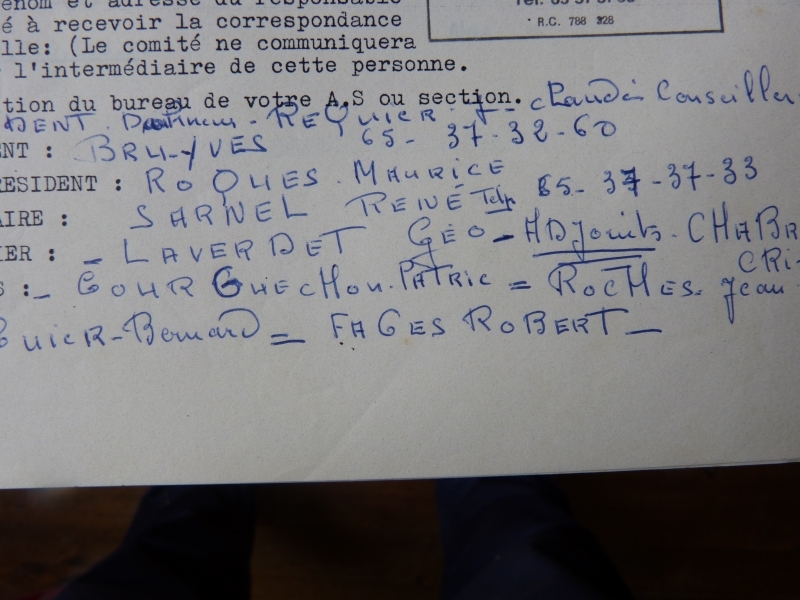 énom et adresse du responsable
Tél. 65 37
é à recevoir la correspondance
R.C. 788 928
lle: (Le comité ne communiquera
l'intermédiaire de cette personne.
tion du bureau de votre A.S ou section.
DENT. REQUIER. J- claude Conseiller
ENT : BRU-YVES 65- 37-32-60
RESIDENT : ROQUES. MAURICE
AIRE : SARNEL RENÉ Telp 65-37-37-33
IER : - LAVERDET GÉO - ADJoints. CHABR
CRI
S :- GOURGUECHON. PATRIC = ROCHES. Jean
QUIER-Bernard = FAGES ROBERT -